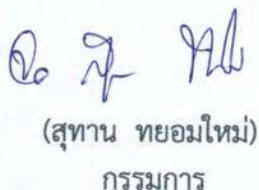 (สุทาน ทยอมใหม่)
กรรมการ